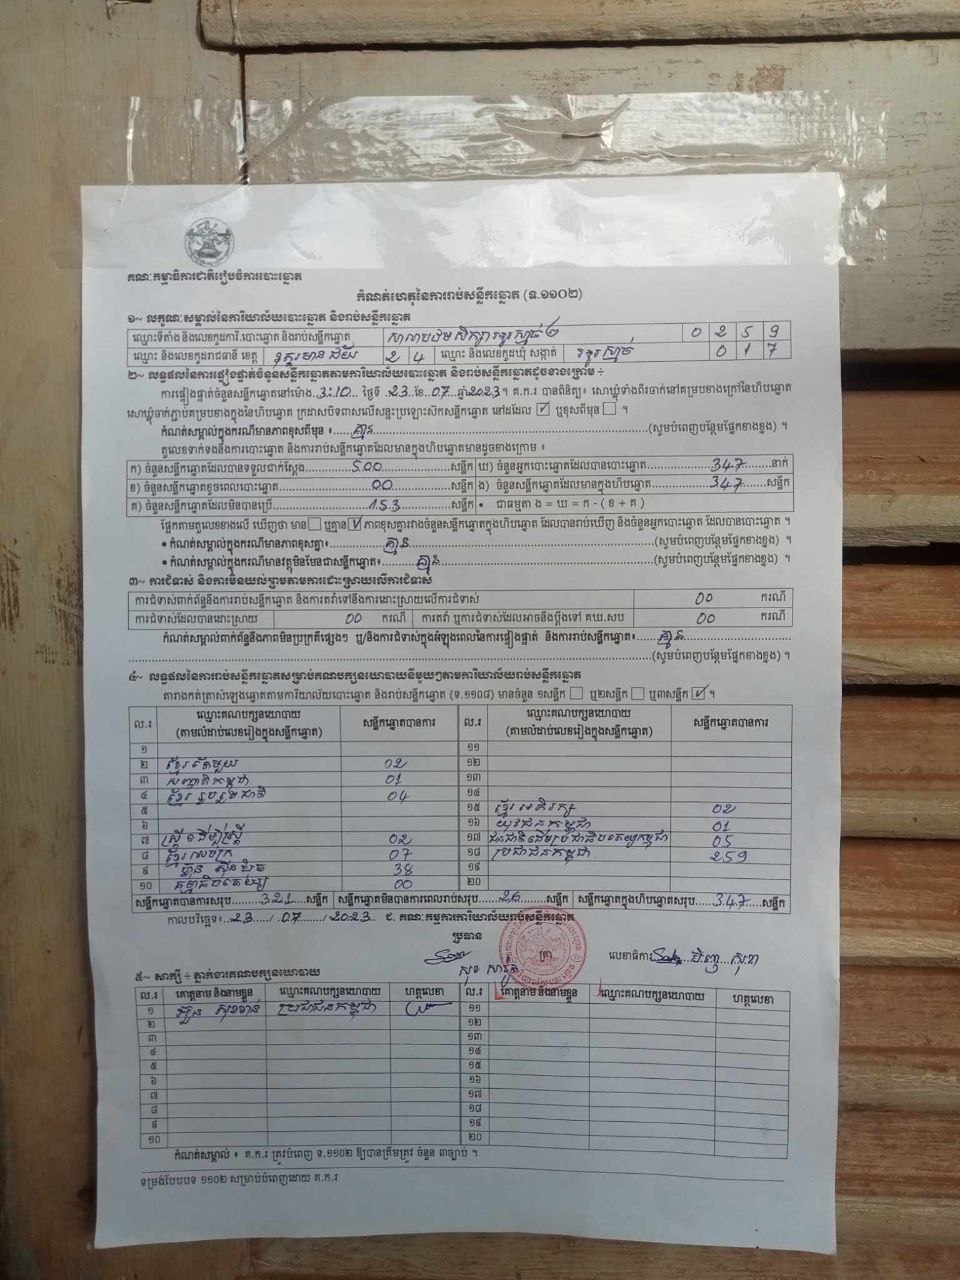 គណៈកម្មាធិការជាតិរៀបចំការបោះឆ្នោត
កំណត់ហេតុនៃការរាប់សន្លឹកឆ្នោត (ទ.១១០២)
១~ លក្ខណៈសម្គាល់នៃការិយាល័យបោះឆ្នោត និងរាប់សន្លឹកឆ្នោត
ឈ្មោះទីតាំង និងលេខកូដការិ.បោះឆ្នោត និងរាប់សន្លឹកឆ្នោត សាលាបឋមសិក្សាអូរស្មាច់២ 0 2 5 9
ឈ្មោះ និងលេខកូដរាជធានី ខេត្ត ឧត្តរមានជ័យ 2 4 ឈ្មោះ និងលេខកូដឃុំ សង្កាត់ អូរស្មាច់ 0 1 7
២~ លទ្ធផលនៃការផ្ទៀងផ្ទាត់ចំនួនសន្លឹកឆ្នោតតាមការិយាល័យបោះឆ្នោត និងរាប់សន្លឹកឆ្នោតដូចខាងក្រោម ÷
ការផ្ទៀងផ្ទាត់ចំនួនសន្លឹកឆ្នោតនៅម៉ោង 3:10 ថ្ងៃទី 23 ខែ 07 ឆ្នាំ 2023។ គ.ក.រ បានពិនិត្យ៖ សោឃ្លុំទាំងពីរចាក់នៅគម្របខាងក្រៅនៃហិបឆ្នោត
សោឃ្លុំចាក់ភ្ជាប់គម្របខាងក្នុងនៃហិបឆ្នោត ក្រដាសបិទពាសលើសន្ទះប្រឡោះស៊កសន្លឹកឆ្នោត នៅដដែល ☑ ឬខុសពីមុន ☐ ។
កំណត់សម្គាល់ក្នុងករណីមានភាពខុសពីមុន ៖ គ្មាន (សូមបំពេញបន្ថែមផ្នែកខាងខ្នង) ។
តួលេខទាក់ទងនឹងការបោះឆ្នោត និងការរាប់សន្លឹកឆ្នោតដែលមានក្នុងហិបឆ្នោតមានដូចខាងក្រោម ៖
ក) ចំនួនសន្លឹកឆ្នោតដែលបានទទួលជាក់ស្តែង 500 សន្លឹក ឃ) ចំនួនអ្នកបោះឆ្នោតដែលបានបោះឆ្នោត 347 នាក់
ខ) ចំនួនសន្លឹកឆ្នោតខូចពេលបោះឆ្នោត 00 សន្លឹក ង) ចំនួនសន្លឹកឆ្នោតដែលមានក្នុងហិបឆ្នោត 347 សន្លឹក
គ) ចំនួនសន្លឹកឆ្នោតដែលមិនបានប្រើ 153 សន្លឹក • ជាធម្មតា ង = ឃ = ក - ( ខ + គ )
ផ្អែកតាមតួលេខខាងលើ ឃើញថា មាន ☐ ឬគ្មាន ☑ ភាពខុសគ្នារវាងចំនួនសន្លឹកឆ្នោតក្នុងហិបឆ្នោត ដែលបានរាប់ឃើញ និងចំនួនអ្នកបោះឆ្នោត ដែលបានបោះឆ្នោត ។
• កំណត់សម្គាល់ក្នុងករណីមានភាពខុសគ្នា៖ គ្មាន (សូមបំពេញបន្ថែមផ្នែកខាងខ្នង) ។
• កំណត់សម្គាល់ក្នុងករណីមានវត្ថុមិនមែនជាសន្លឹកឆ្នោត៖ គ្មាន (សូមបំពេញបន្ថែមផ្នែកខាងខ្នង) ។
៣~ ការជំទាស់ និងការមិនយល់ព្រមតាមការដោះស្រាយលើការជំទាស់
ការជំទាស់ពាក់ព័ន្ធនឹងការរាប់សន្លឹកឆ្នោត និងការតវ៉ាទៅនឹងការដោះស្រាយលើការជំទាស់ 00 ករណី
ការជំទាស់ដែលបានដោះស្រាយ 00 ករណី ការតវ៉ា ឬការជំទាស់ដែលអាចនឹងប្តឹងទៅ គឃ.សប 00 ករណី
កំណត់សម្គាល់ពាក់ព័ន្ធនឹងភាពមិនប្រក្រតីផ្សេងៗ ឬ/និងការជំទាស់ក្នុងអំឡុងពេលនៃការផ្ទៀងផ្ទាត់ និងការរាប់សន្លឹកឆ្នោត៖ គ្មាន
(សូមបំពេញបន្ថែមផ្នែកខាងខ្នង) ។
៤~ លទ្ធផលនៃការរាប់សន្លឹកឆ្នោតសម្រាប់គណបក្សនយោបាយនីមួយៗតាមការិយាល័យរាប់សន្លឹកឆ្នោត
តារាងកត់ត្រាសំឡេងឆ្នោតតាមការិយាល័យបោះឆ្នោត និងរាប់សន្លឹកឆ្នោត (ទ.១១០៨) មានចំនួន ១សន្លឹក ☐ ឬ២សន្លឹក ☐ ឬ៣សន្លឹក ☑ ។
ល.រ ឈ្មោះគណបក្សនយោបាយ (តាមលំដាប់លេខរៀងក្នុងសន្លឹកឆ្នោត) សន្លឹកឆ្នោតបានការ ល.រ ឈ្មោះគណបក្សនយោបាយ (តាមលំដាប់លេខរៀងក្នុងសន្លឹកឆ្នោត) សន្លឹកឆ្នោតបានការ
១ ១១
២ ខ្មែរតែមួយ 02 ១២
៣ សញ្ជាតិកម្ពុជា 01 ១៣
៤ ខ្មែររួបរួមជាតិ 04 ១៤
៥ ១៥ ខ្មែរអភិរក្ស 02
៦ ១៦ យុវជនកម្ពុជា 01
៧ ស្ត្រីដើម្បីស្ត្រី 02 ១៧ ជនជាតិដើមប្រជាធិបតេយ្យកម្ពុជា 05
៨ 07 ១៨ ប្រជាជនកម្ពុជា 259
៩ ហ៊្វុនស៊ិនប៉ិច 38 ១៩
១០ ធម្មាធិបតេយ្យ 00 ២០
សន្លឹកឆ្នោតបានការសរុប 321 សន្លឹក សន្លឹកឆ្នោតមិនបានការពេលរាប់សរុប 26 សន្លឹក សន្លឹកឆ្នោតក្នុងហិបឆ្នោតសរុប 347 សន្លឹក
កាលបរិច្ឆេទ៖ 23 / 07 / 2023 ជ. គណៈកម្មការការិយាល័យរាប់សន្លឹកឆ្នោត
ប្រធាន
ត្រា
លេខាធិការ
សុខ
៥~ សាក្សី ÷ ភ្នាក់ងារគណបក្សនយោបាយ
ល.រ គោត្តនាម និងនាមខ្លួន ឈ្មោះគណបក្សនយោបាយ ហត្ថលេខា ល.រ គោត្តនាម និងនាមខ្លួន ឈ្មោះគណបក្សនយោបាយ ហត្ថលេខា
១ ប្រជាជនកម្ពុជា ១១
២ ១២
៣ ១៣
៤ ១៤
៥ ១៥
៦ ១៦
៧ ១៧
៨ ១៨
៩ ១៩
១០ ២០
កំណត់សម្គាល់ ៖ គ.ក.រ ត្រូវបំពេញ ទ.១១០២ ឱ្យបានត្រឹមត្រូវ ចំនួន ៣ច្បាប់ ។
ទម្រង់បែបបទ ១១០២ សម្រាប់បំពេញដោយ គ.ក.រ